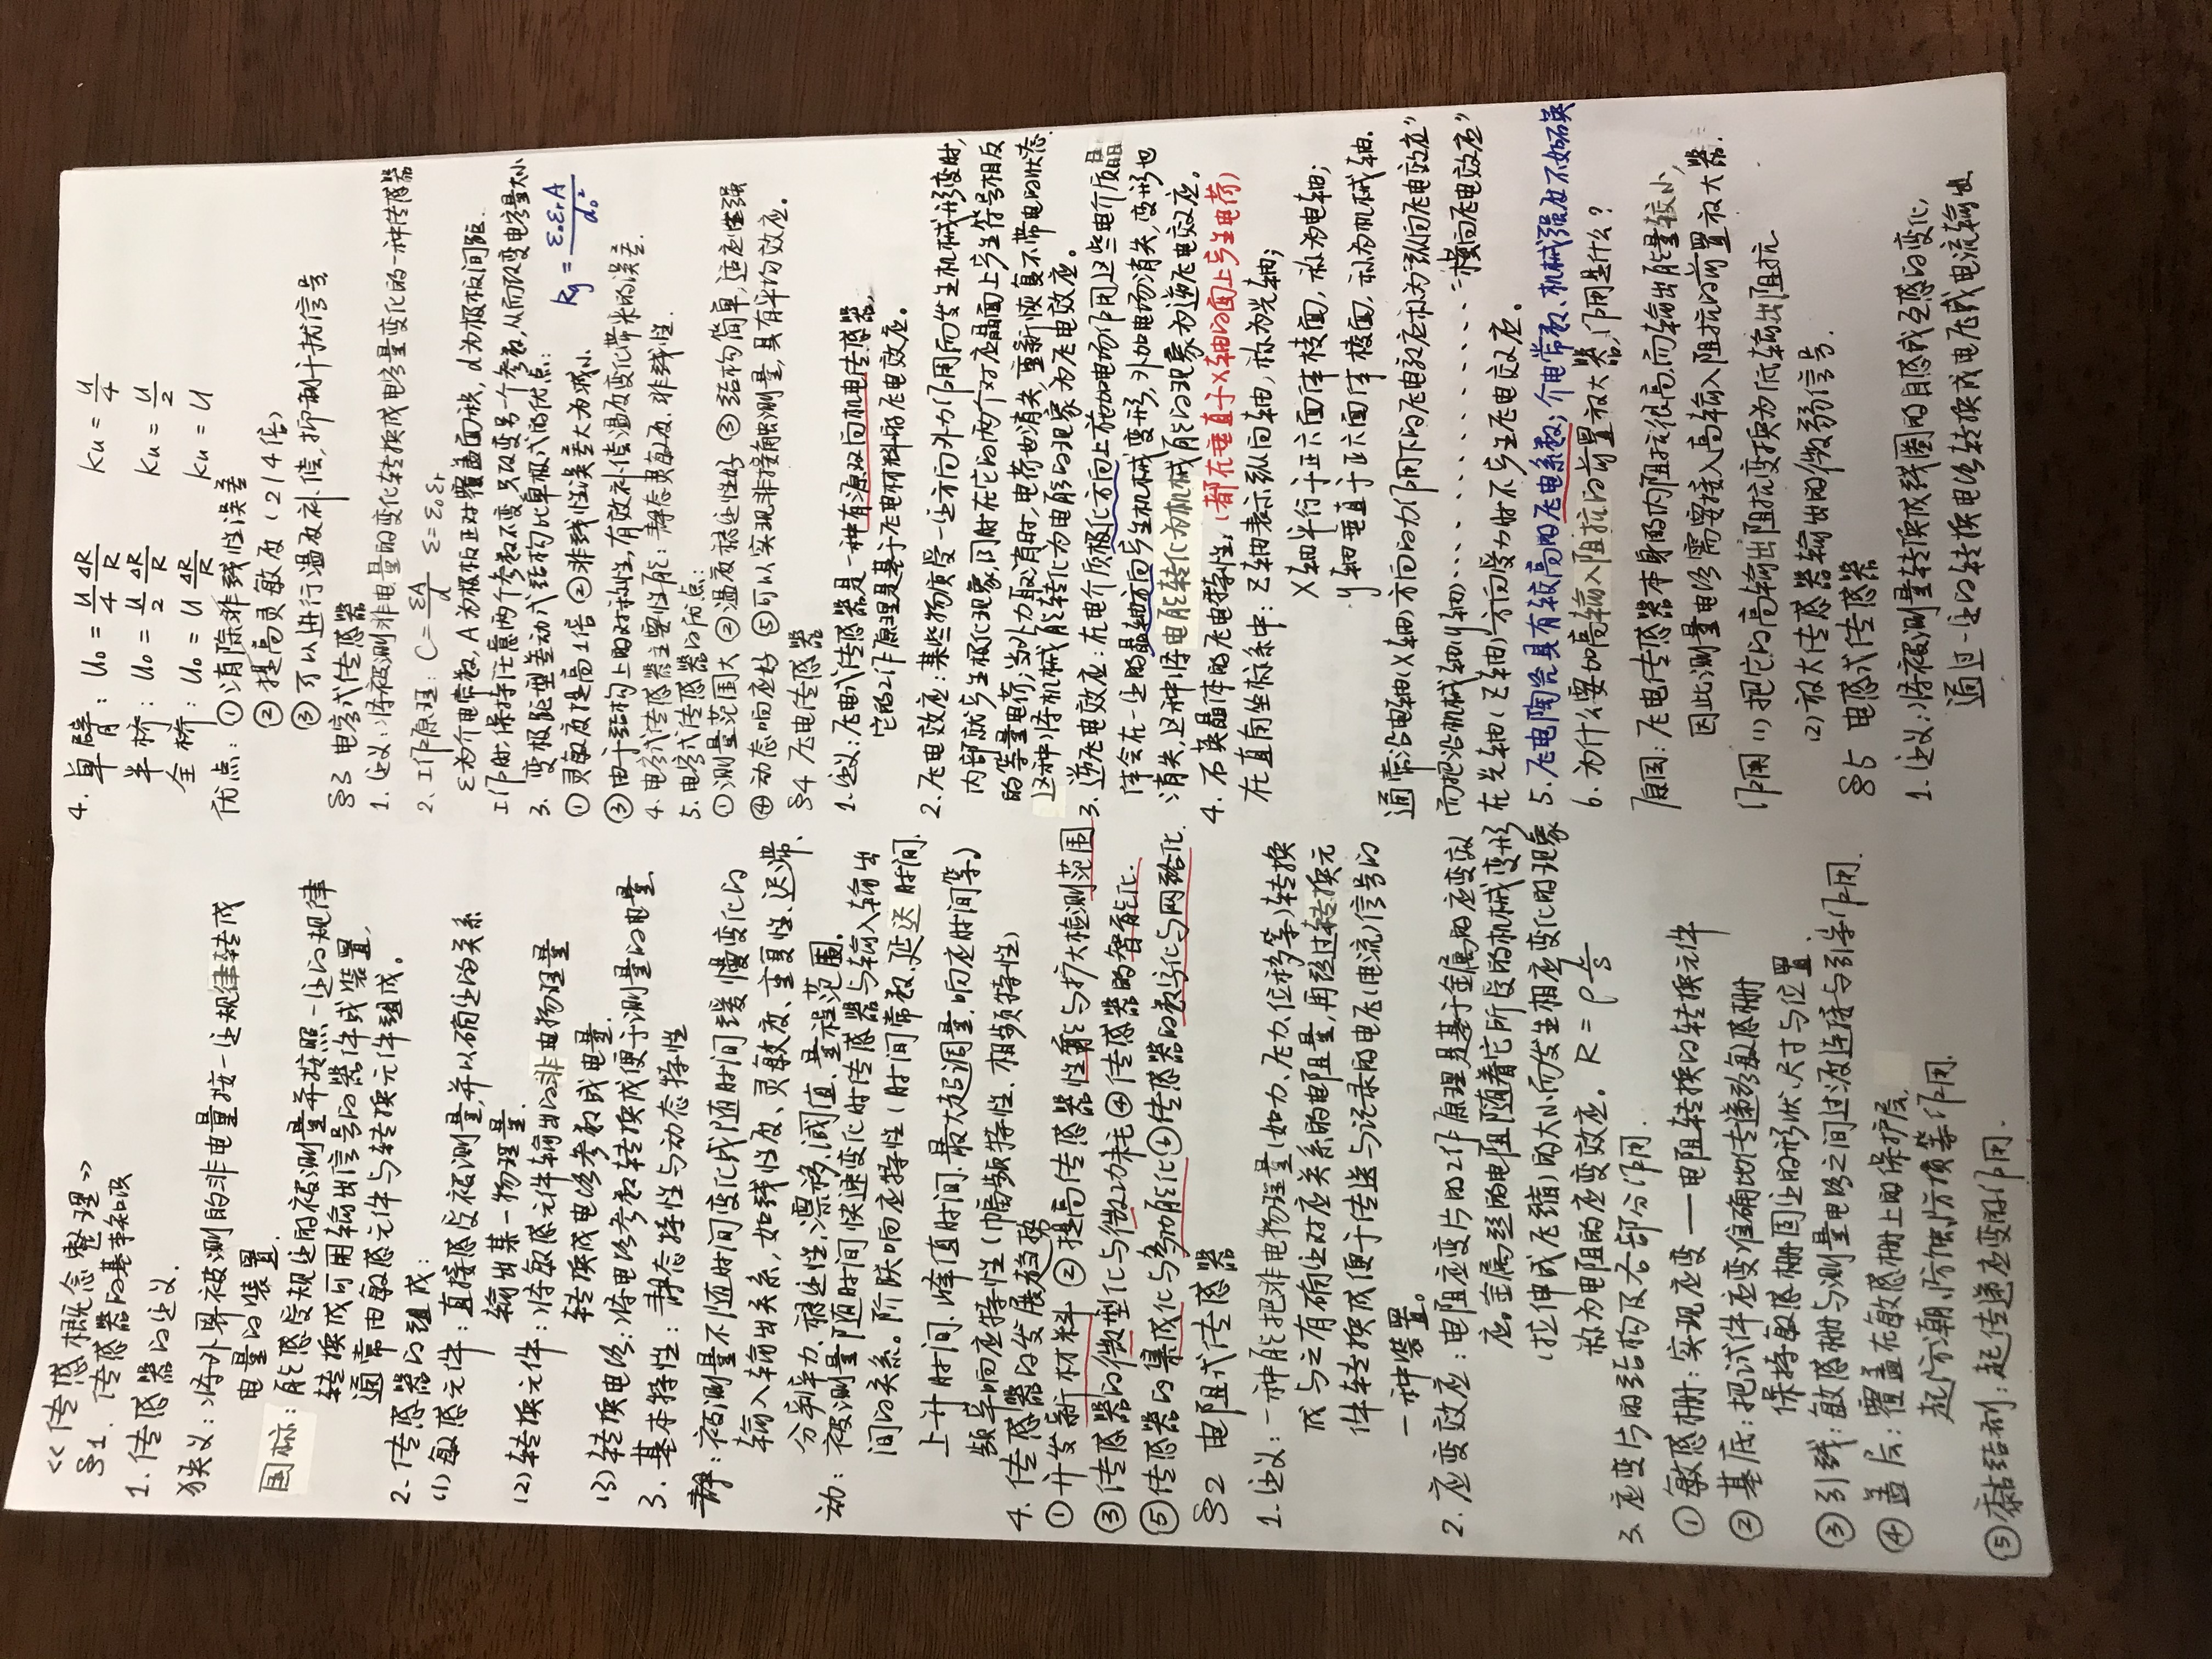 《传感概念整理》
§1. 传感器的基本知识
1. 传感器的定义.
狭义：将外界被测的非电量按一定规律转成
电量的装置.
国标：能感受规定的被测量并按照一定的规律
转换成可用输出信号的器件或装置，
通常由敏感元件与转换元件组成。
2. 传感器的组成：
(1) 敏感元件：直接感受被测量，并以确定的关系
输出某一物理量.
(2) 转换元件：将敏感元件输出的非电物理量
转换成电路参数或电量.
(3) 转换电路：将电路参数转换成便于测量的电量.
3. 基本特性：静态特性与动态特性
静：被测量不随时间变化或随时间缓慢变化的
输入输出关系，如线性度、灵敏度、重复性、迟滞、
分辨率力、稳定性、漂移、阈值、量程范围.
动：被测量随时间快速变化时传感器与输入输出
间的关系。阶跃响应特性(时间常数、延迟时间、
上升时间、峰值时间、最大超调量、响应时间等)
频率响应特性(幅频特性、相频特性)
4. 传感器的发展趋势
① 开发新材料 ② 提高传感器性能与扩大检测范围
③ 传感器的微型化与微功耗 ④ 传感器的智能化.
⑤ 传感器的集成化与多功能化 ⑥ 传感器的数字化与网络化.
§2 电阻式传感器
1. 定义：一种能把非电物理量(如力、压力、位移等)转换
成与之有确定对应关系的电阻量，再经过转换元
件转换成便于传送与记录的电压(电流)信号的
一种装置。
2. 应变效应：电阻应变片的工作原理是基于金属的应变效
应。金属丝的电阻随着它所受的机械变形
(拉伸或压缩)的大小而发生相应变化的现象
称为电阻的应变效应。 R = ρ L/S
3. 应变片的结构及各部分作用.
① 敏感栅：实现应变——电阻转换的转换元件
② 基底：把试件应变准确地传递给敏感栅
保持敏感栅固定的形状、尺寸与位置.
③ 引线：敏感栅与测量电路之间过渡连接与引导作用.
④ 盖层：覆盖在敏感栅上的保护层.
起防潮、防蚀、防损等作用.
⑤ 黏结剂：起传递应变的作用.
4. 单臂：U₀ = U/4 ΔR/R Ku = U/4
半桥：U₀ = U/2 ΔR/R Ku = U/2
全桥：U₀ = U ΔR/R Ku = U
优点：① 消除非线性误差
② 提高灵敏度(2/4倍)
③ 可以进行温度补偿，抑制干扰信号
§3 电容式传感器
1. 定义：将被测非电量的变化转换成电容量变化的一种传感器
2. 工作原理：C = εA/d ε=ε₀εr
ε为介电常数，A为极板正对覆盖面积，d为极板间距.
工作时，保持任意两个参数不变，只改变另一个参数，从而改变电容量大小
3. 变极距型差动式结构比单极式的优点：
Kg = ε₀εrA/d₀²
① 灵敏度提高1倍 ② 非线性误差大为减小
③ 由于结构上的对称性，有效补偿温度变化带来的误差.
4. 电容式传感器主要性能：静态灵敏度、非线性.
5. 电容式传感器的优点：
① 测量范围大 ② 温度稳定性好 ③ 结构简单，适应性强
④ 动态响应好 ⑤ 可以实现非接触测量，具有平均效应。
§4 压电传感器
1. 定义：压电式传感器是一种有源双向机电传感器，
它的工作原理是基于压电材料的压电效应。
2. 压电效应：某些物质受一定方向外力作用而发生机械形变时，
内部就产生极化现象，同时在它的两个对应晶面上产生符号相反
的等量电荷；当外力取消时，电荷也消失，重新恢复不带电的状态.
这种将机械能转化为电能的现象为压电效应。
3. 逆压电效应：在电介质极化方向上施加电场作用，这些电介质晶
体会在一定的晶轴方向产生机械变形，外加电场消失，变形也
消失，这种将电能转化为机械能的现象为逆压电效应。
4. 石英晶体的压电特性：(都在垂直于X轴的面上产生电荷)
在直角坐标系中：Z轴表示纵向轴，称为光轴；
X轴平行于正六面体棱面，称为电轴；
y轴垂直于正六面体棱面，称为机械轴.
通常沿电轴(X轴)方向的力作用下的压电效应称为“纵向压电效应”
而把沿机械轴(y轴)·············“横向压电效应”
在光轴(Z轴)方向受力时不产生压电效应。
5. 压电陶瓷具有较高的压电系数；介电常数、机械强度不如石英
6. 为什么要加高输入阻抗的前置放大器，作用是什么？
原因：压电传感器本身的内阻抗很高，而输出能量较小，
因此测量电路需要接入高输入阻抗的前置放大器.
作用 (1) 把它的高输出阻抗变换为低输出阻抗
(2) 放大传感器输出的微弱信号.
§5 电感式传感器
1. 定义：将被测量转换成线圈的自感或互感的变化，
通过一定的转换电路转换成电压或电流输出